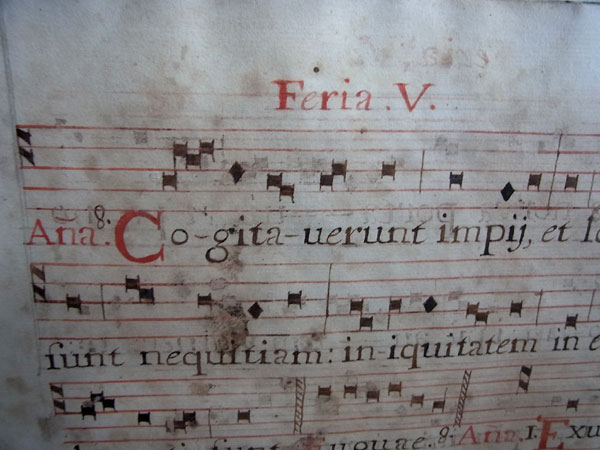 Feria . V.
8.
Ana. Co-gita-uerunt impij, et
sunt nequitiam: in-iquitatem in
sunt 8. Ana. 1. Exu